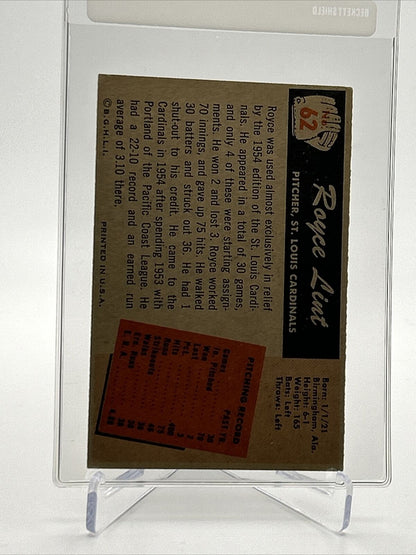 BECKETT SHIELD
62
Royce Lint
PITCHER, ST. LOUIS CARDINALS
Born: 1/1/21
Birmingham, Ala.
Height: 6-1
Weight: 165
Bats: Left
Throws: Left
Royce was used almost exclusively in relief
by the 1954 edition of the St. Louis Cardi-
nals. He appeared in a total of 30 games,
and only 4 of these were starting assign-
ments. He won 2 and lost 3. Royce worked
70 innings, and gave up 75 hits. He walked
30 batters and struck out 36. He had 1
shut-out to his credit. He came to the
Cardinals in 1954 after spending 1953 with
Portland of the Pacific Coast League. He
had a 22-10 record and an earned run
average of 3.10 there.
© B.G.H.L.I.
PRINTED IN U.S.A.
PITCHING RECORD
PAST YR.
Games
In. Pitched
Won
Lost
Hits
Runs
Strikeouts
Walks
Ern. Runs
E. R. A.